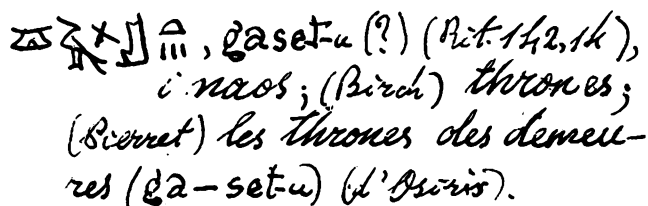 , gaset-u (?) (Rit. 142,14),
i naos; (Birch) thrones;
(Pierret) les thrones des demeu-
res (ga-set-u) (d'Osiris).